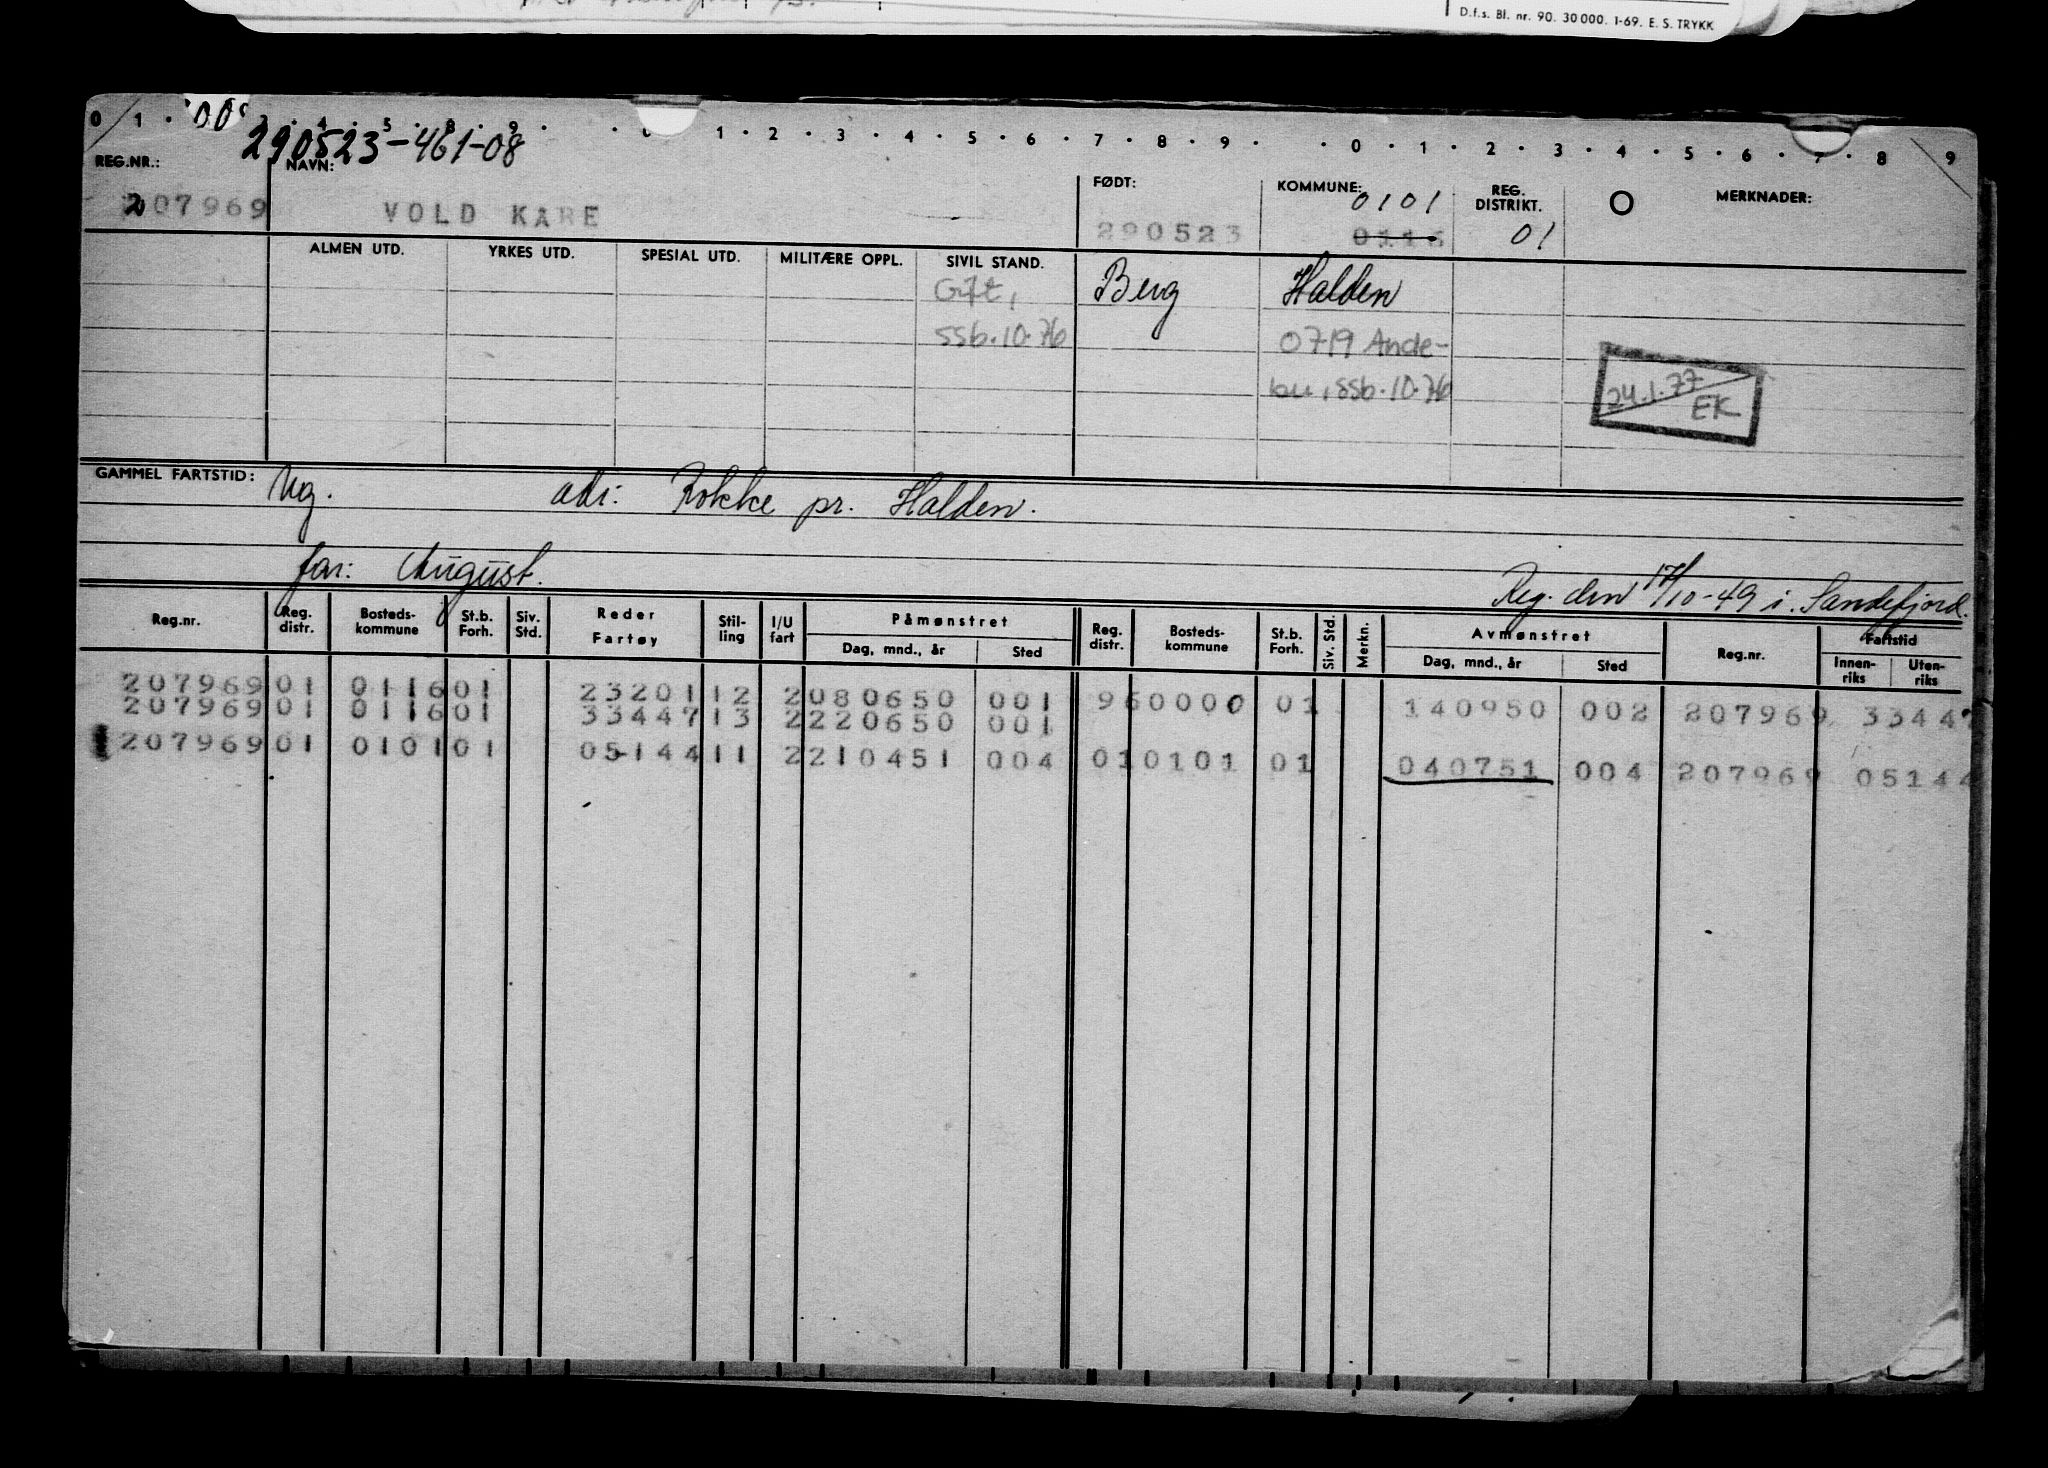 D.f.s. Bl. nr. 90. 30 000. 1-69. E. S. TRYKK
0 1 · 00 · 4 · 5 · 8 · 9 · · 1 · 2 · 3 · 4 · 5 · 6 · 7 · 8 · 9 · · 0 · 1 · 2 · 3 · 4 · 5 · 6 · 7 · 8 9
290523-461-08
REG.NR.: NAVN: FØDT: KOMMUNE: REG. DISTRIKT. O MERKNADER:
0101
207969 VOLD KARE 290523 0116 01
ALMEN UTD. YRKES UTD. SPESIAL UTD. MILITÆRE OPPL. SIVIL STAND.
Gift, Berg Halden
ssb.10.76 0719 Ande-
bu, ssb.10.76
24.1.77
EK
GAMMEL FARTSTID: Ug. adr: Rokke pr. Halden.
far: August. Reg. den 17/10-49 i Sandefjord.
Reg.nr. Reg. distr. Bosteds-kommune St.b. Forh. Siv. Std. Reder Fartøy Stil-ling I/U fart Påmønstret Reg. distr. Bosteds-kommune St.b. Forh. Siv. Std. Merkn. Avmønstret Reg.nr. Fartstid
Dag, mnd., år Sted Dag, mnd., år Sted Innen-riks Uten-riks
207969 01 0116 01 23201 12 2 080650 001 96 0000 01 140950 002 207969 33447
207969 01 0116 01 33447 13 2 220650 001
207969 01 0101 01 05144 11 2 210451 004 01 0101 01 040751 004 207969 05144